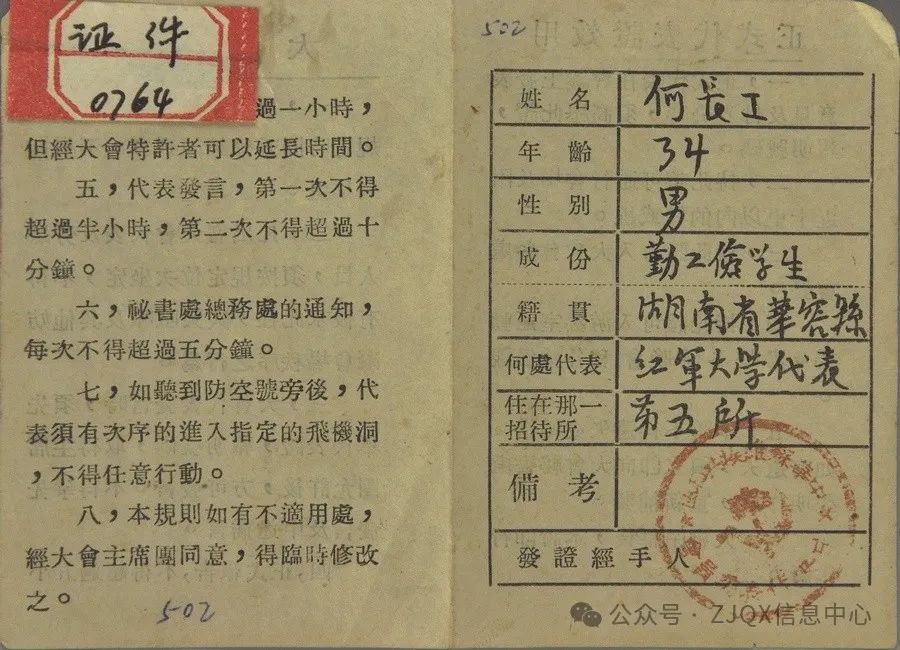 证件
0764
过一小時，
但經大會特許者可以延長時間。
五，代表發言，第一次不得
超過半小時，第二次不得超過十
分鐘。
六，祕書處總務處的通知，
每次不得超過五分鐘。
七，如聽到防空號旁後，代
表須有次序的進入指定的飛機洞
，不得任意行動。
八，本規則如有不適用處，
經大會主席團同意，得臨時修改
之。
502
502
姓名 何長工
年齡 34
性別 男
成份 勤工儉学生
籍貫 湖南省華容縣
何處代表 红軍大学代表
住在那一招待所 第五所
備考
發證經手人
公众号 · ZJQX信息中心